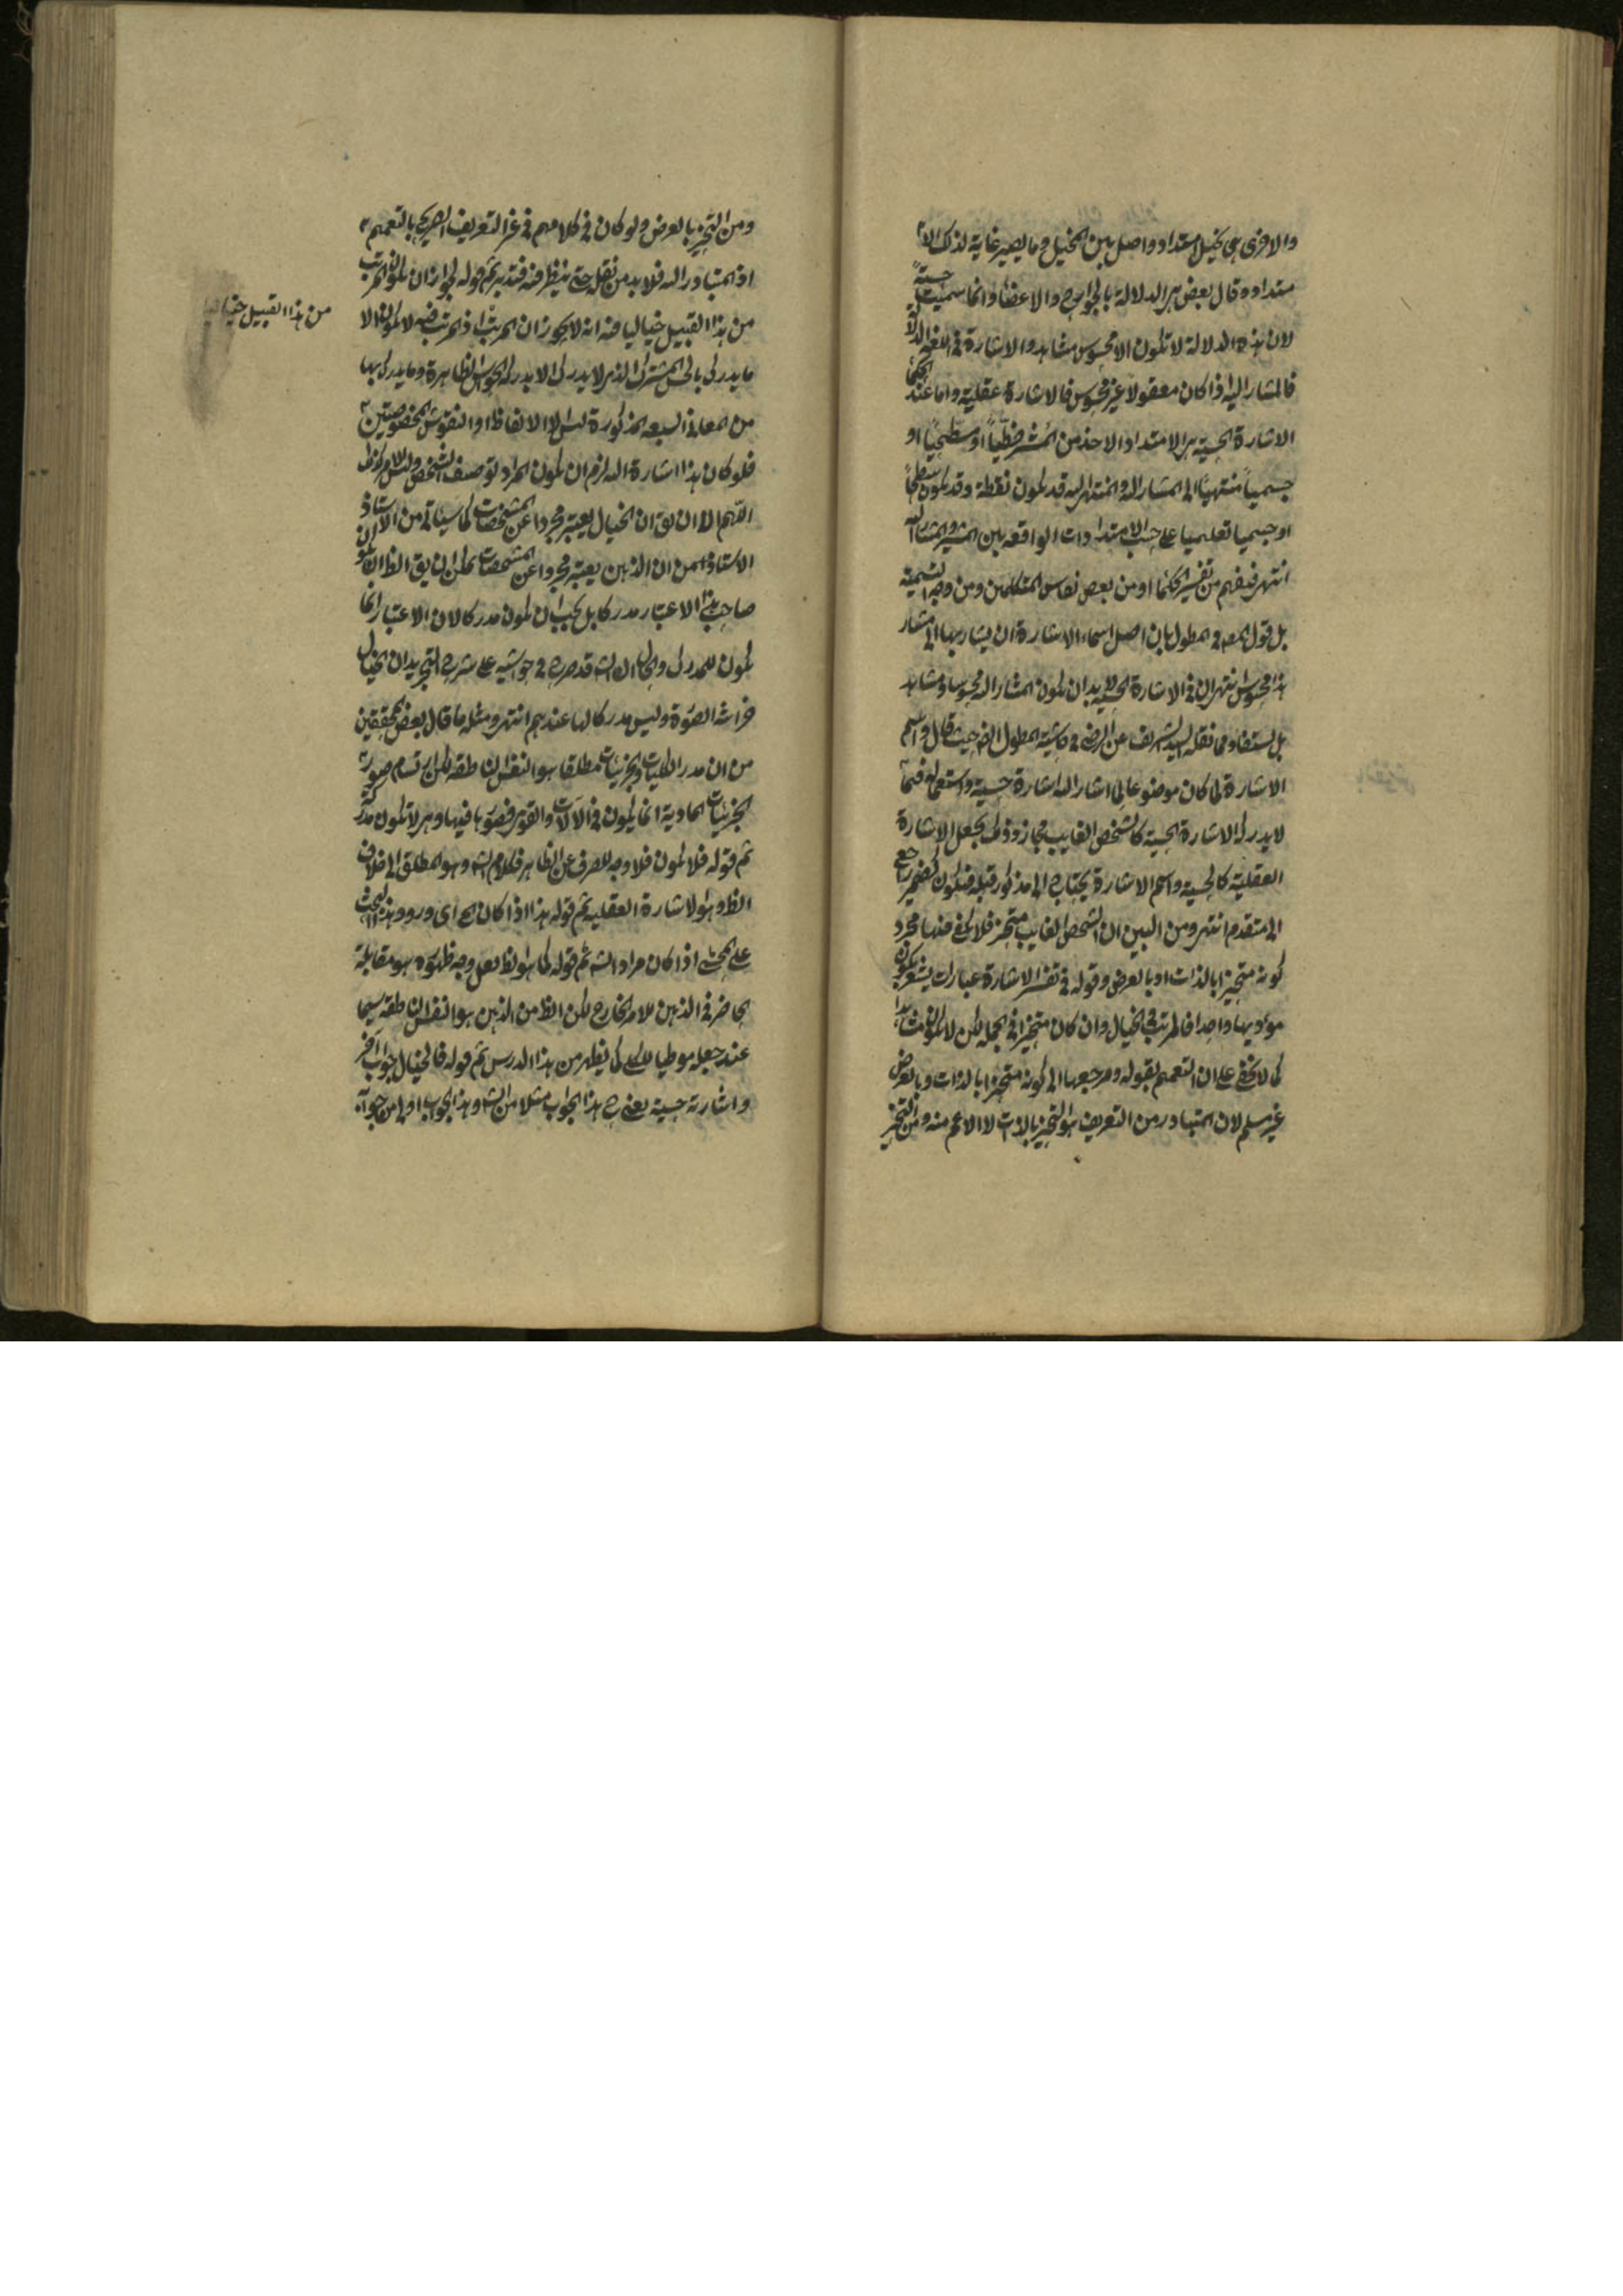 والاخرى هي تخيل امتداد واصل بين المخيل وما يصير غاية لذلك الا
متداد وقال بعض هي الدلالة بالجوارح والاعضاء وانما سميت حسية
لان هذه الدلالة لا تكون الا لمحسوس مشاهد والاشارة في اللغة الدلالة
فالمشار اليه اذا كان معقولا غير محسوس فالاشارة عقلية واما عند الحكماء
الاشارة الحسية هي الامتداد الاخذ من المشير خطيا او سطحيا او
جسميا منتهيا الى المشار اليه والمنتهى اليه قد يكون نقطة وقد يكون سطحا
او جسميا تعليميا على حسب الامتدادات الواقعة بين المشير والمشار اليه
انتهى فيفهم من تفسير الحكماء ومن بعض المتكلمين ومن وجه التسمية
بل قول المصه في المطول بان اصل اسماء الاشارة ان يشار بها الى مشار
هذا محسوس انتهى ان في الاشارة الحسية لا بد ان يكون المشار اليه محسوسا ومشاهد
بل يستفاد مما نقله السيد الشريف عن الرضي في حاشية المطول ايضا حيث قال واسم
الاشارة لما كان موضوعا لما اشار اليه اشارة حسية واستعماله فيما
لا يدركه الاشارة الحسية كالشخص الغايب مجاز وذلك بجعل الاشارة
العقلية كالحسية واسم الاشارة يحتاج الى مذكور قبله فيكون كضمير راجع
الى متقدم انتهى ومن البين ان الشخص الغايب متحيز فلا يكفي فيها مجرد
كونه متحيزا بالذات او بالعرض وقوله في تفسير الاشارة عبارات يشعر بكون
مؤديها واحدا فالمرتب في الخيال وان كان متحيزا في الجملة لكن لا يكون مشاهدا
كما لا يخفى على ان التعميم بقوله ومرجعها الى كونه متحيزا بالذات وبالعرض
غير مسلم لان المتبادر من التعريف هو التحيز بالذات لا الاعم منه ومن التحيز
ومن التحيز بالعرض ولو كان في كلامهم في غير التعريف الصريح بالتعميم
اذ المتبادر اليه فلا بد من نقله حتى ينظر فيه فتدبر ثم قوله لجواز ان يكون المرتب
من هذا القبيل خياليا فيه انه لا يجوز ان المرتب اذ المرتب فيه لا يكون الا
ما يدرك بالحس المشترك الذي لا يدرك الا بدرك الحواس الظاهرة وما يدرك بها
من المعاني السبعة المذكورة ليس الا الالفاظ او النقوش المخصوصتين
فلو كان هذا اشارة اليه لزم ان يكون المراد توصيف الشخص وليس الامر كذلك
اللهم الا ان يق ان الخيال يعتبر مجردا عن المشخصات كما سيأتي من الاستاذ
الاستاذ من ان الذهن يعتبر مجردا عن المشخصات لكن لنا يق الظ ان يكون
صاحب هذا الاعتبار مدركا بل يجب ان يكون مدركا لان الاعتبار انما
يكون للمدرك والحال ان الشه قد صرح في حواشيه على شرح التجريد ان الخيال
خزانة الصورة وليس مدركا لها عندهم انتهى ومثله ما قال بعض المحققين
من ان مدرك الكليات والجزئيات مطلقا هو النفس الناطقة لكن ارتسام صورة
الجزئيات المادية انما يكون في الالات والقوى فصورها فيها وهي لا تكون مدركة
ثم قوله فلا يكون فلا وجه للصرف عن الظاهر فكلام الشه وهو المطلق الى خلاف
الظ وهو الاشارة العقلية ثم قوله هذا اذا كان مع اى ورود هذا البحث
على المحشي اذا كان مراد الشه ثم قوله كما هو الظ لعل وجه ظهوره هو مقابلة
الحاضر في الذهن للامر الخارج لكن الظ من الذهن هو النفس الناطقة سيما
عند جعله موطيا للكلي كما يظهر من هذا الدرس ثم قوله فالخيال جواب آخر
واشارته حسية يعني ح هذا الجواب مثلا من الشه وهذا الجواب اولى من جوابه
من هذا القبيل خياليا